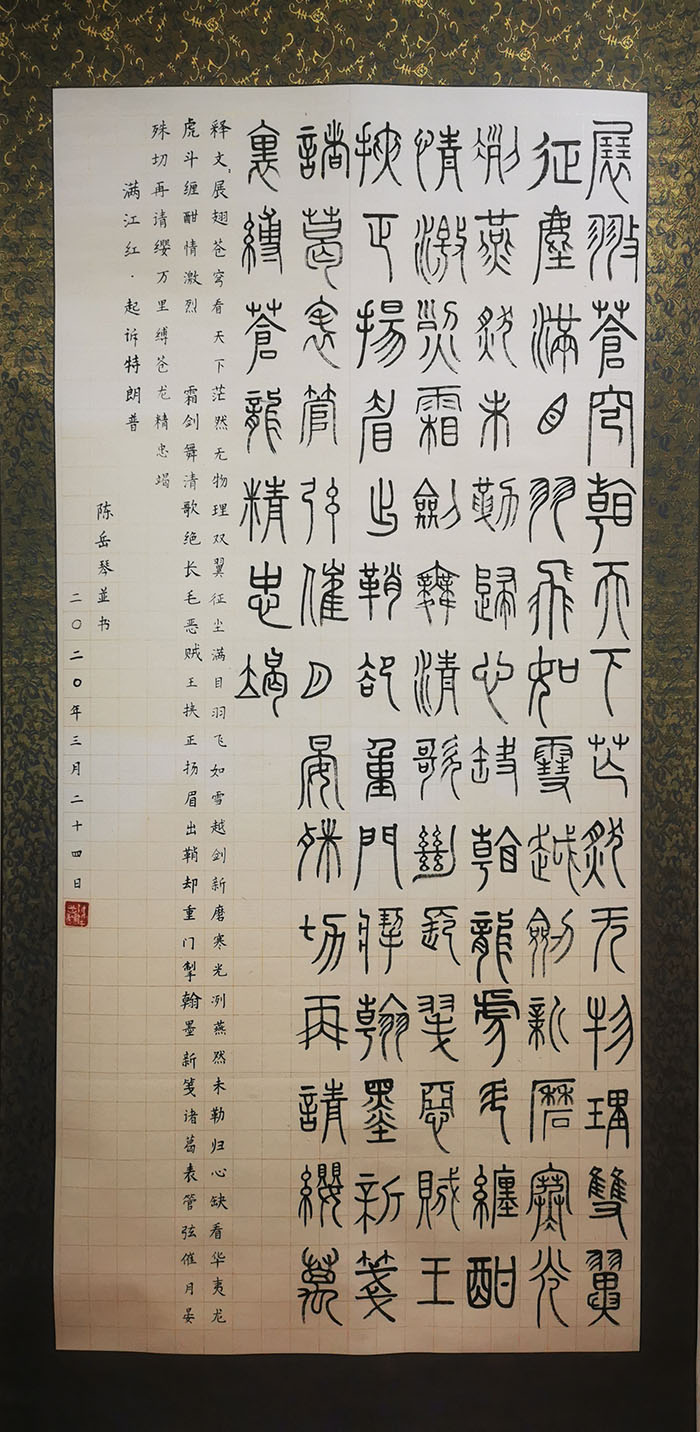 展翅蒼穹看天下茫然无物理雙翼
征塵滿目羽飛如雪越劍新磨寒光
冽燕然未勒歸心缺看龍虎斗纏酣
情激烈霜劍舞清歌絕長毛惡賊王
挾正揚眉出鞘卻重門掣翰墨新箋
諸葛表管弦催月晏殊切再請纓萬
裏縛蒼龍精忠竭
释文：展翅苍穹看天下茫然无物理双翼征尘满目羽飞如雪越剑新磨寒光冽燕然未勒归心缺看华夷龙
虎斗缠酣情激烈 霜剑舞清歌绝长毛恶贼王挟正扬眉出鞘却重门掣翰墨新笺诸葛表管弦催月晏
殊切再请缨万里缚苍龙精忠竭
满江红·起诉特朗普
陈岳琴並书
二〇二〇年三月二十四日